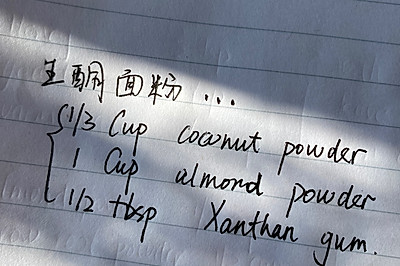 生酮面粉 ...
1/3 Cup coconut powder
1 Cup almond powder
1/2 tbsp Xanthan gum.